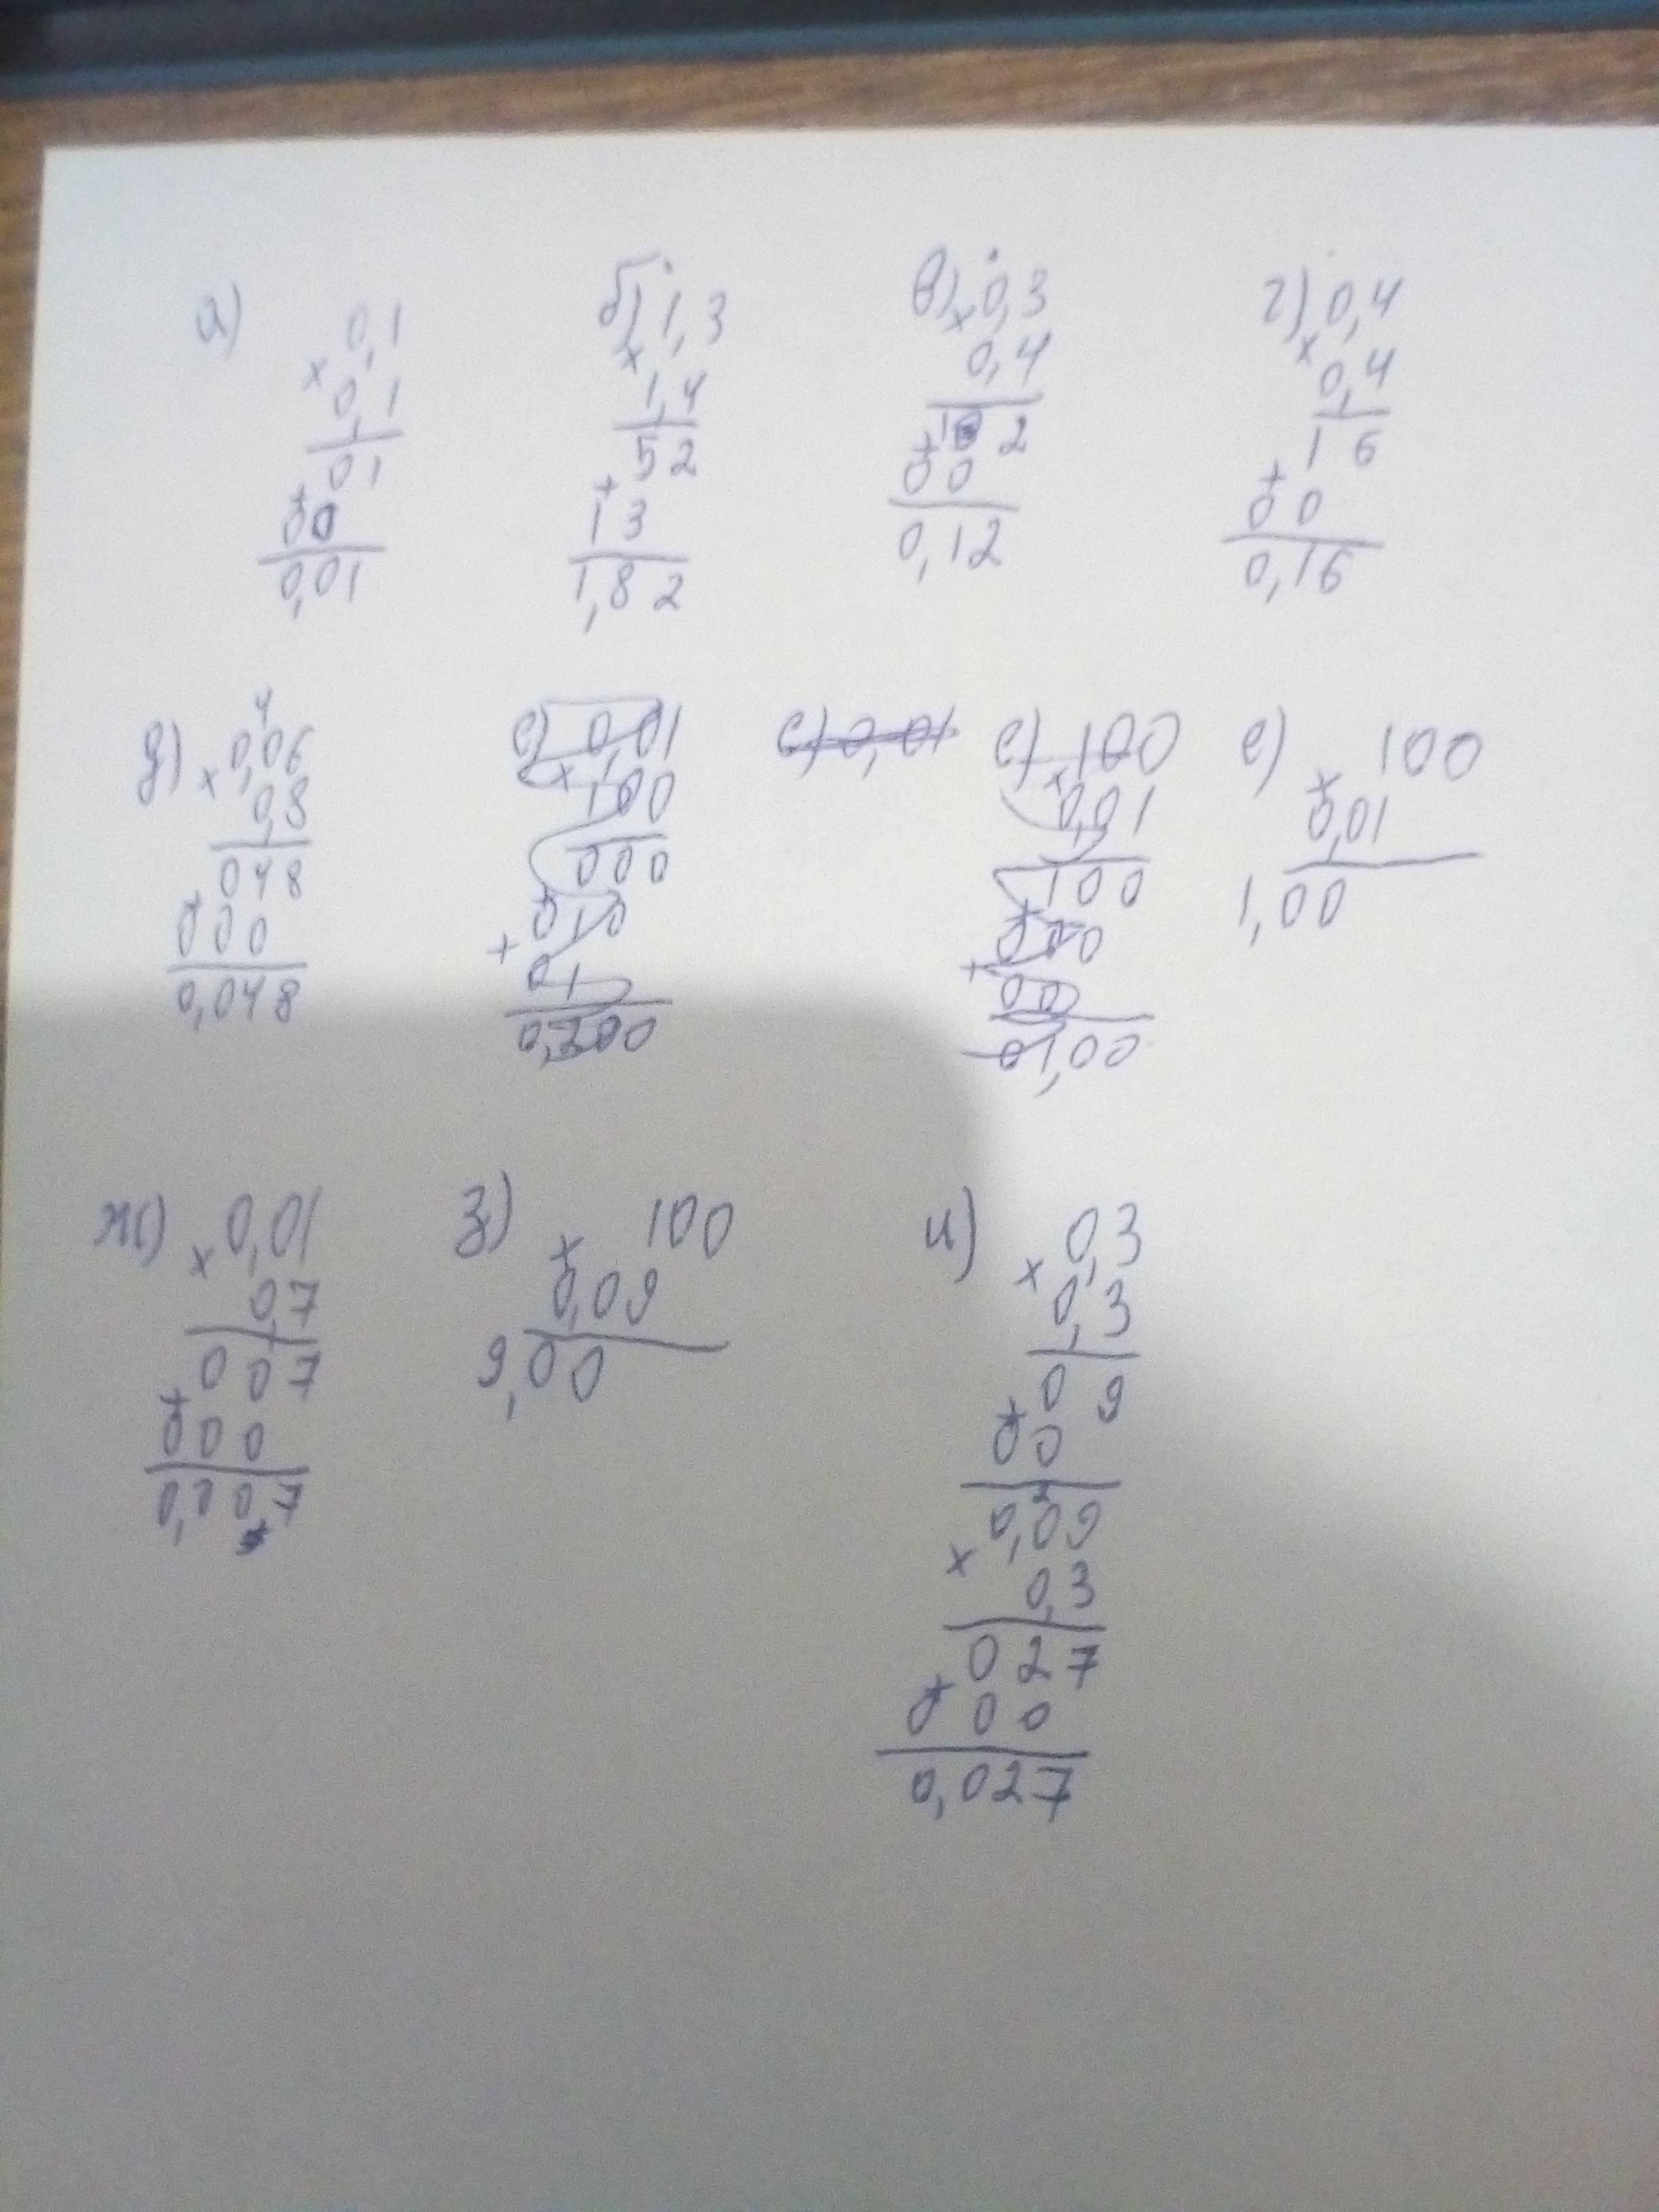 а) 0,1
× 0,1
01
+
00
0,01
б) 1,3
×
1,4
52
+
13
1,82
в) × 0,3
0,4
1 2
+
00
0,12
г) 0,4
×
0,4
16
+
00
0,16
4
д) × 0,06
0,8
048
+
000
0,048
е) 0,01
× 100
000
+
010
+
01
0,200
е) 0,01
е) 100
×
0,01
100
+
000
+
00
01,00
е) 100
×
0,01
1,00
ж) × 0,01
0,7
007
+
000
0,007
з) 100
×
0,09
9,00
и) × 0,3
0,3
09
+
00
2
0,09
×
0,3
027
+
000
0,027